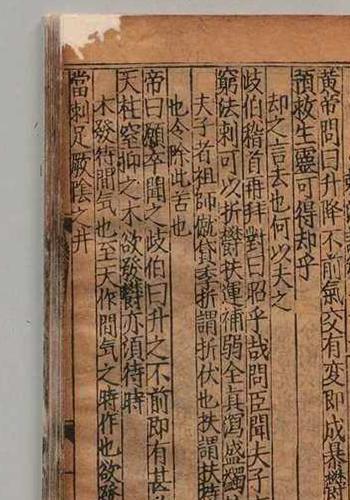 黃帝問曰升降不前氣交有變即成暴鬱
預救生靈可得却乎
却之言去也何以夫之
岐伯稽首再拜對曰昭乎哉問臣聞夫子
窮法刺可以折鬱扶運補弱全真瀉盛蠲
夫子者祖師僦貸季折謂折伏也扶謂扶持
也令除此苦也
帝曰願卒聞之岐伯曰升之不前即有甚
天柱窒抑之木欲發鬱亦須待時
木發待間氣也至天作間氣之時作也欲發
當刺足厥陰之井